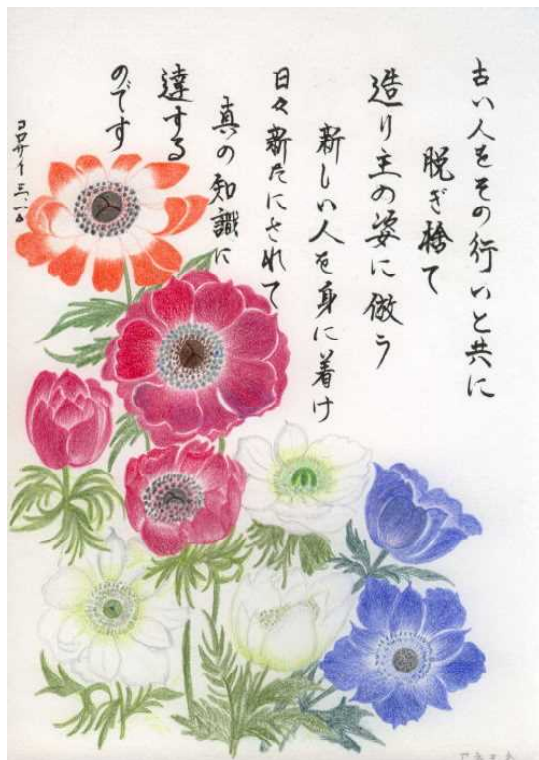 古い人をその行いと共に
脱ぎ捨て
造り主の姿に倣う
新しい人を身に着け
日々新たにされて
真の知識に
達する
のです
コロサイ三、一〇
アネモネ